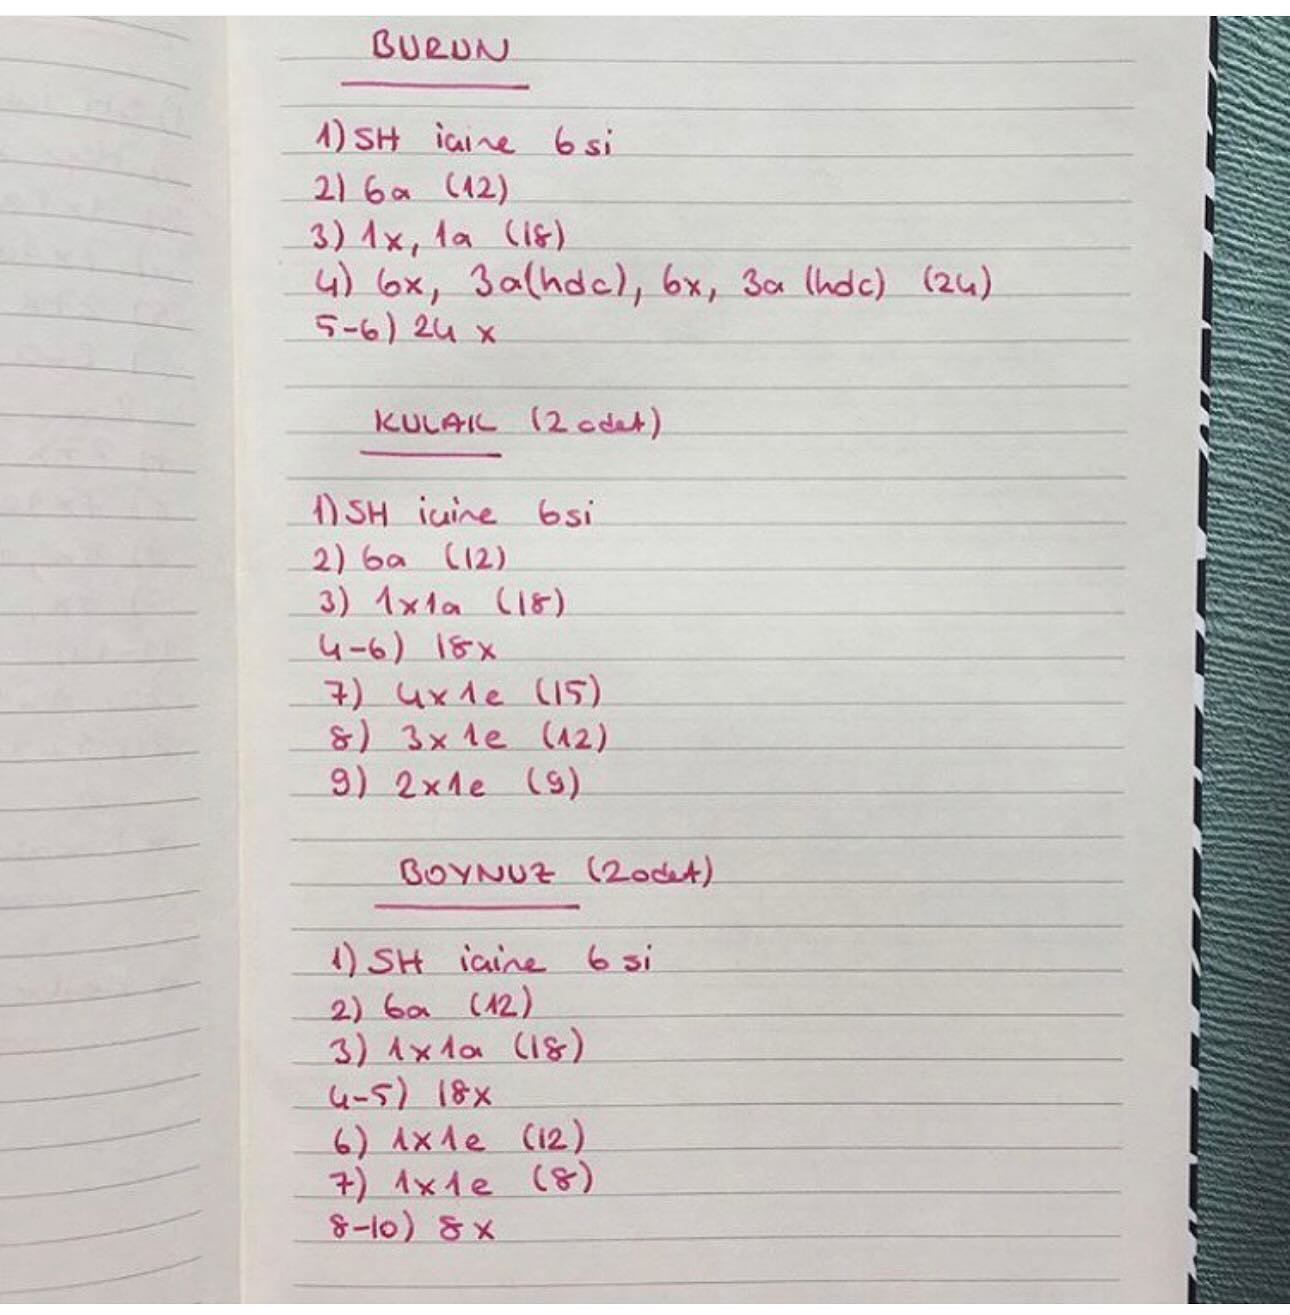 BURUN
1) SH içine 6 si
2) 6a (12)
3) 1x, 1a (18)
4) 6x, 3a(hdc), 6x, 3a (hdc) (24)
5-6) 24 x
KULAK (2 adet)
1) SH içine 6si
2) 6a (12)
3) 1x1a (18)
4-6) 18x
7) 4x1e (15)
8) 3x1e (12)
9) 2x1e (9)
BOYNUZ (2 adet)
1) SH içine 6 si
2) 6a (12)
3) 1x1a (18)
4-5) 18x
6) 1x1e (12)
7) 1x1e (8)
8-10) 8x